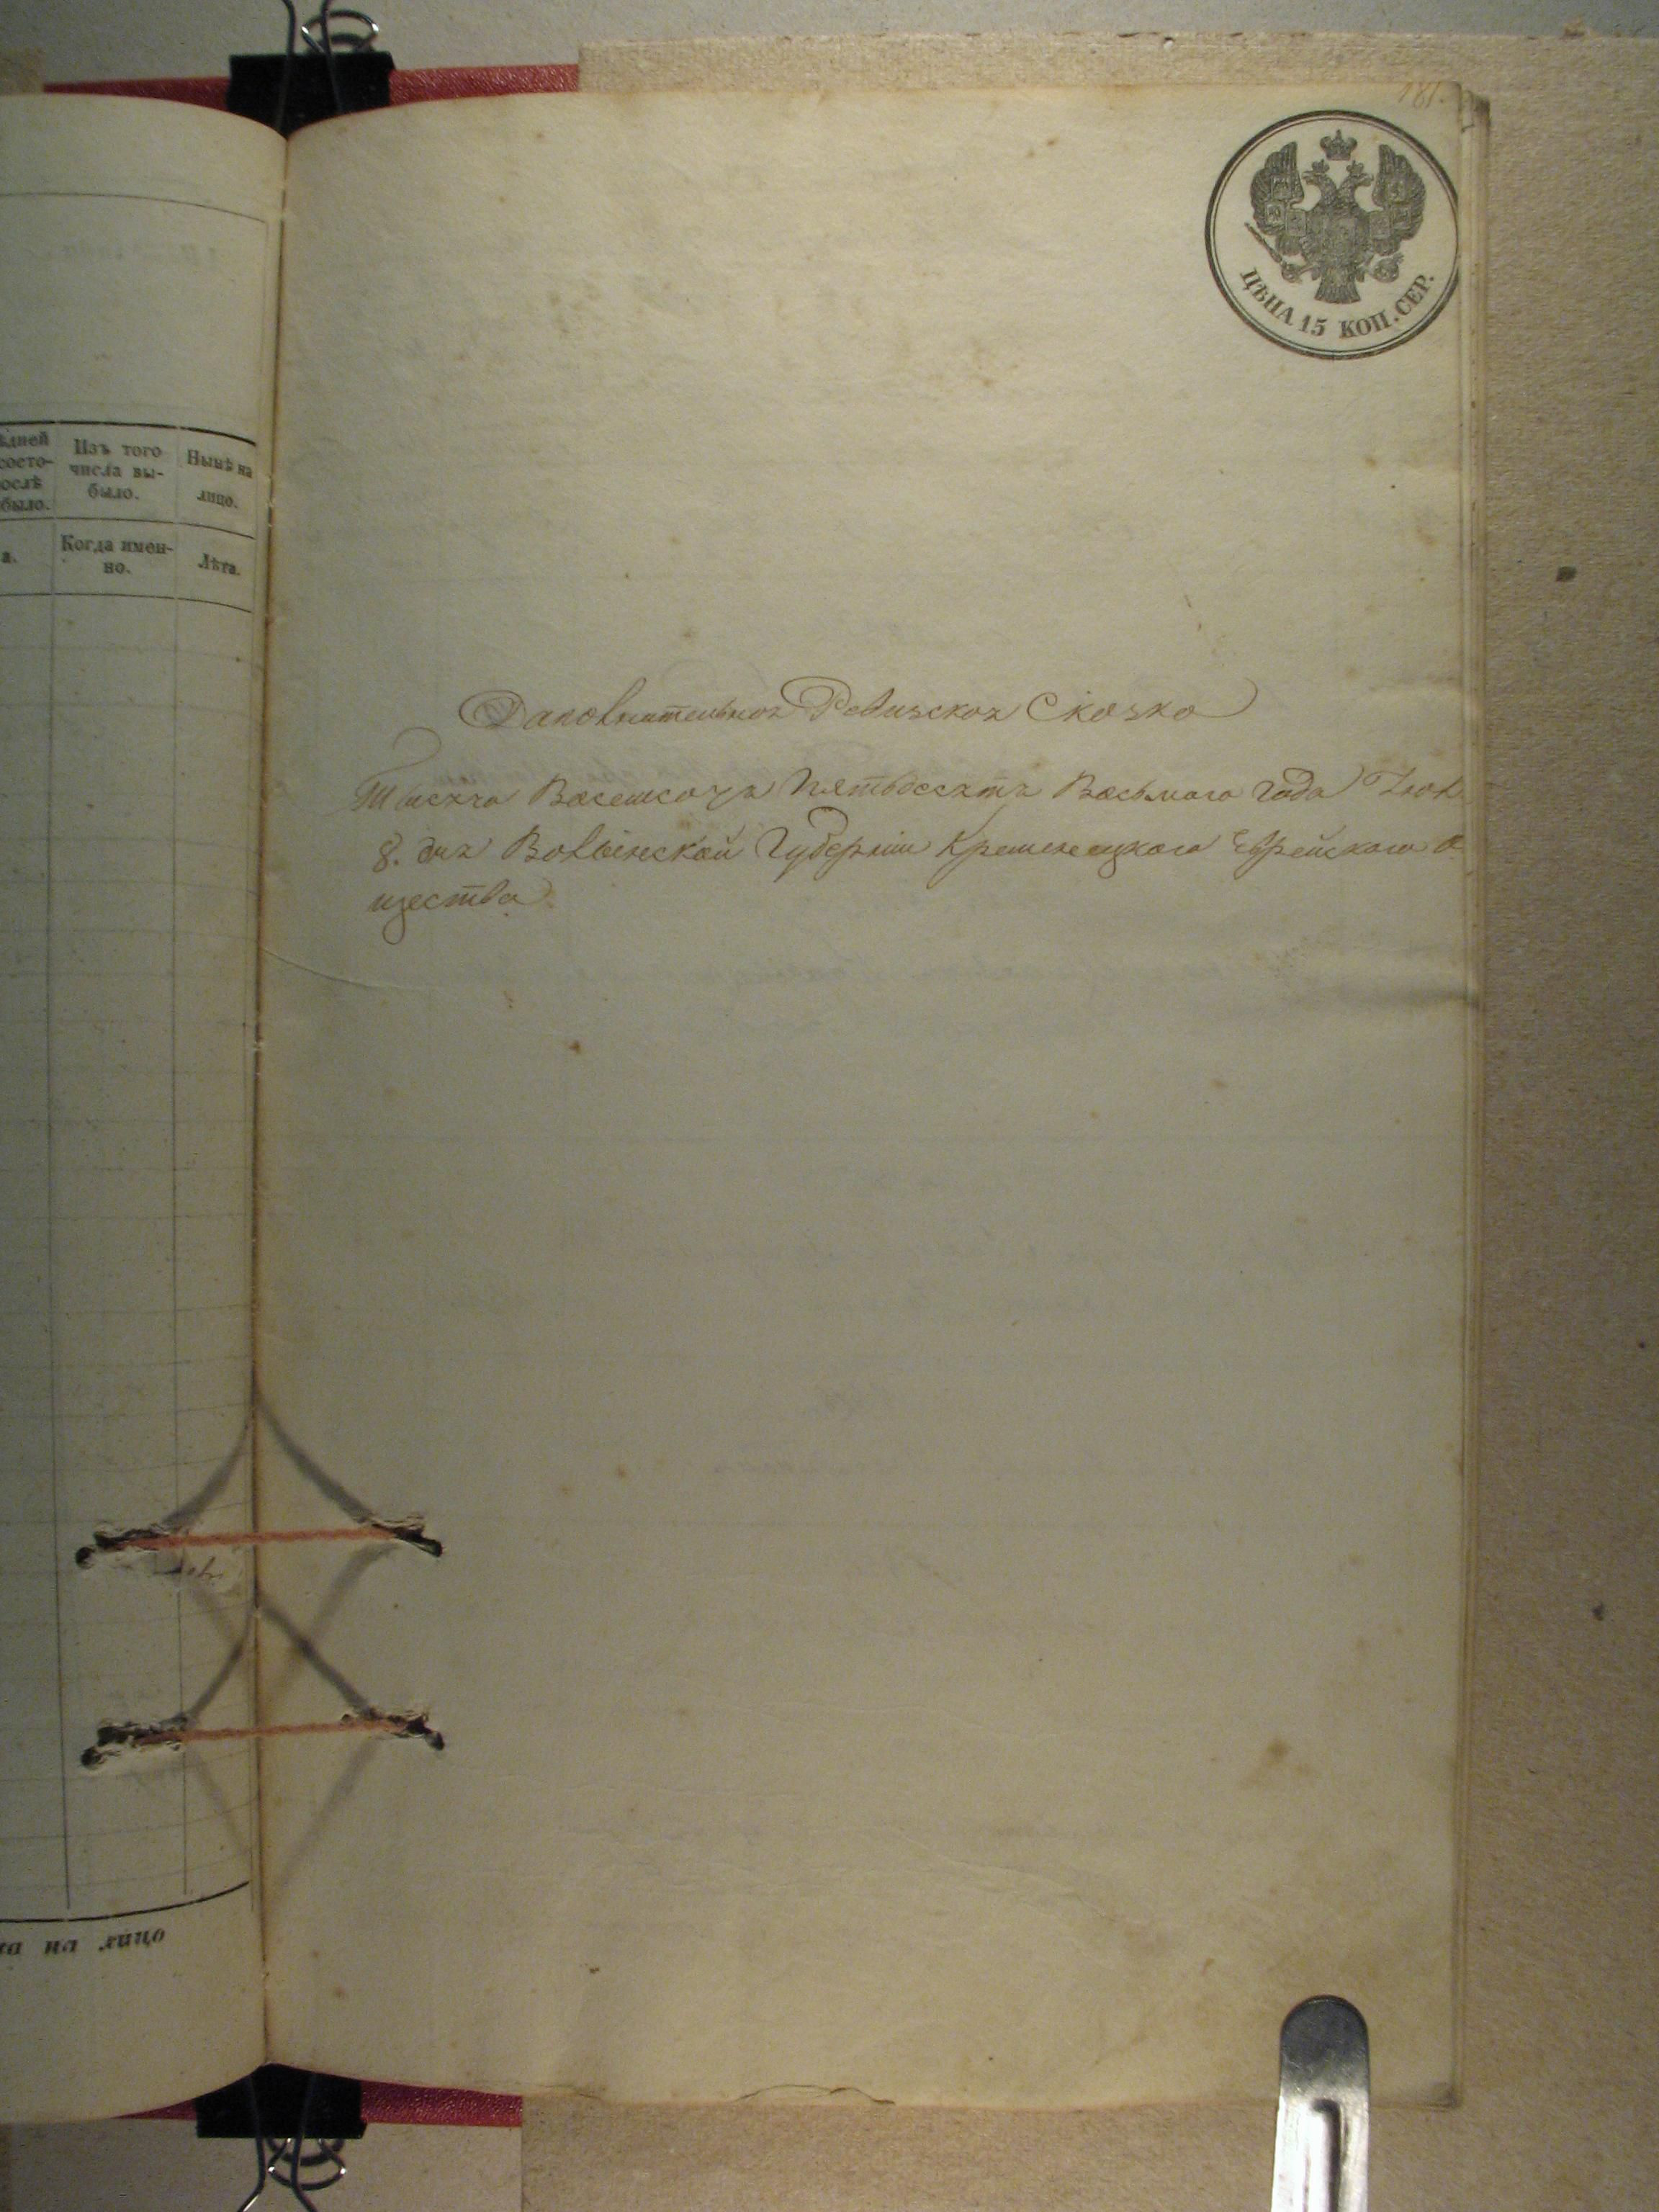 181.
ЦѢНА 15 КОП. СЕР.
ѣдней
состо-
ослѣ
было.
Изъ того
числа вы-
было.
Нынѣ на
лицо.
а.
Когда имен-
но.
Лѣта.
Даполнительноя Ревизскоя Скозко
Тысяча Восемсотъ Пятьдесятъ Восьмаго Года Июл
8. дня Волынской Губерніи Кременецкого Еврейского о
щества.
на лицо